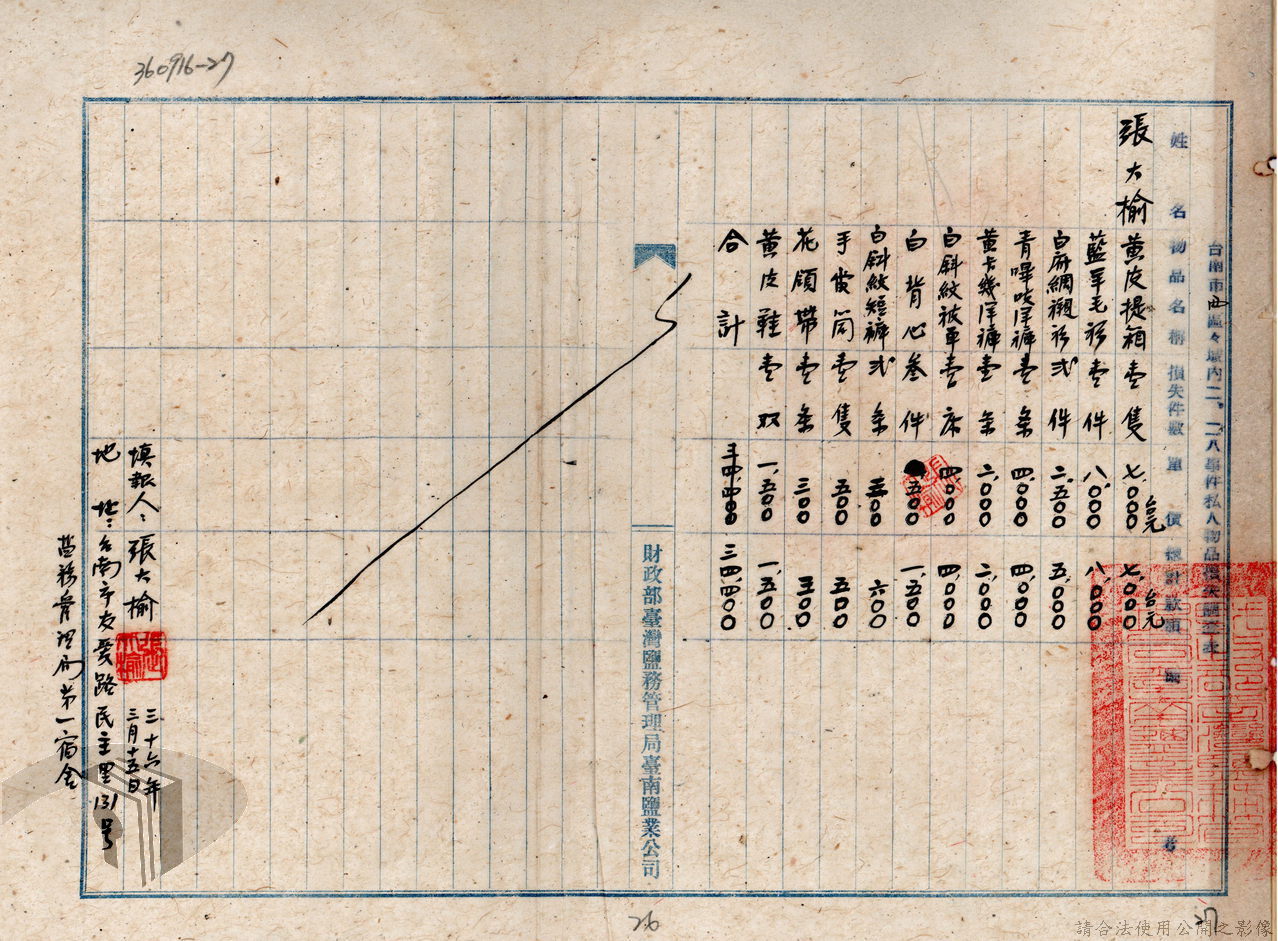 360916-27
台南市西區々域內二．二八事件私人物品損失調查表
姓名 物品名稱 損失件數 單價 總計款額 備考
張大榆 黃皮提箱 壹隻 七、000台元 七、000台元
藍羊毛衫 壹件 八、000 八、000
白府綢襯衫 弍件 二、五00 五、000
青嗶吱洋褲 壹条 四、000 四、000
黃卡幾洋褲 壹条 二、000 二、000
白斜紋被單 壹床 四、000 四、000
白背心 叁件 五00 一、五00
白斜紋短褲 弍条 三00 六00
手電筒 壹隻 五00 五00
花領帶 壹条 三00 三00
黃皮鞋 壹双 一、五00 一、五00
合計 三四、四00
財政部臺灣鹽務管理局臺南鹽業公司
填報人：張大榆
三十六年
三月十五日
地址：台南市友愛路民主里131号
鹽務管理局第一宿舍
26
27
請合法使用公開之影像